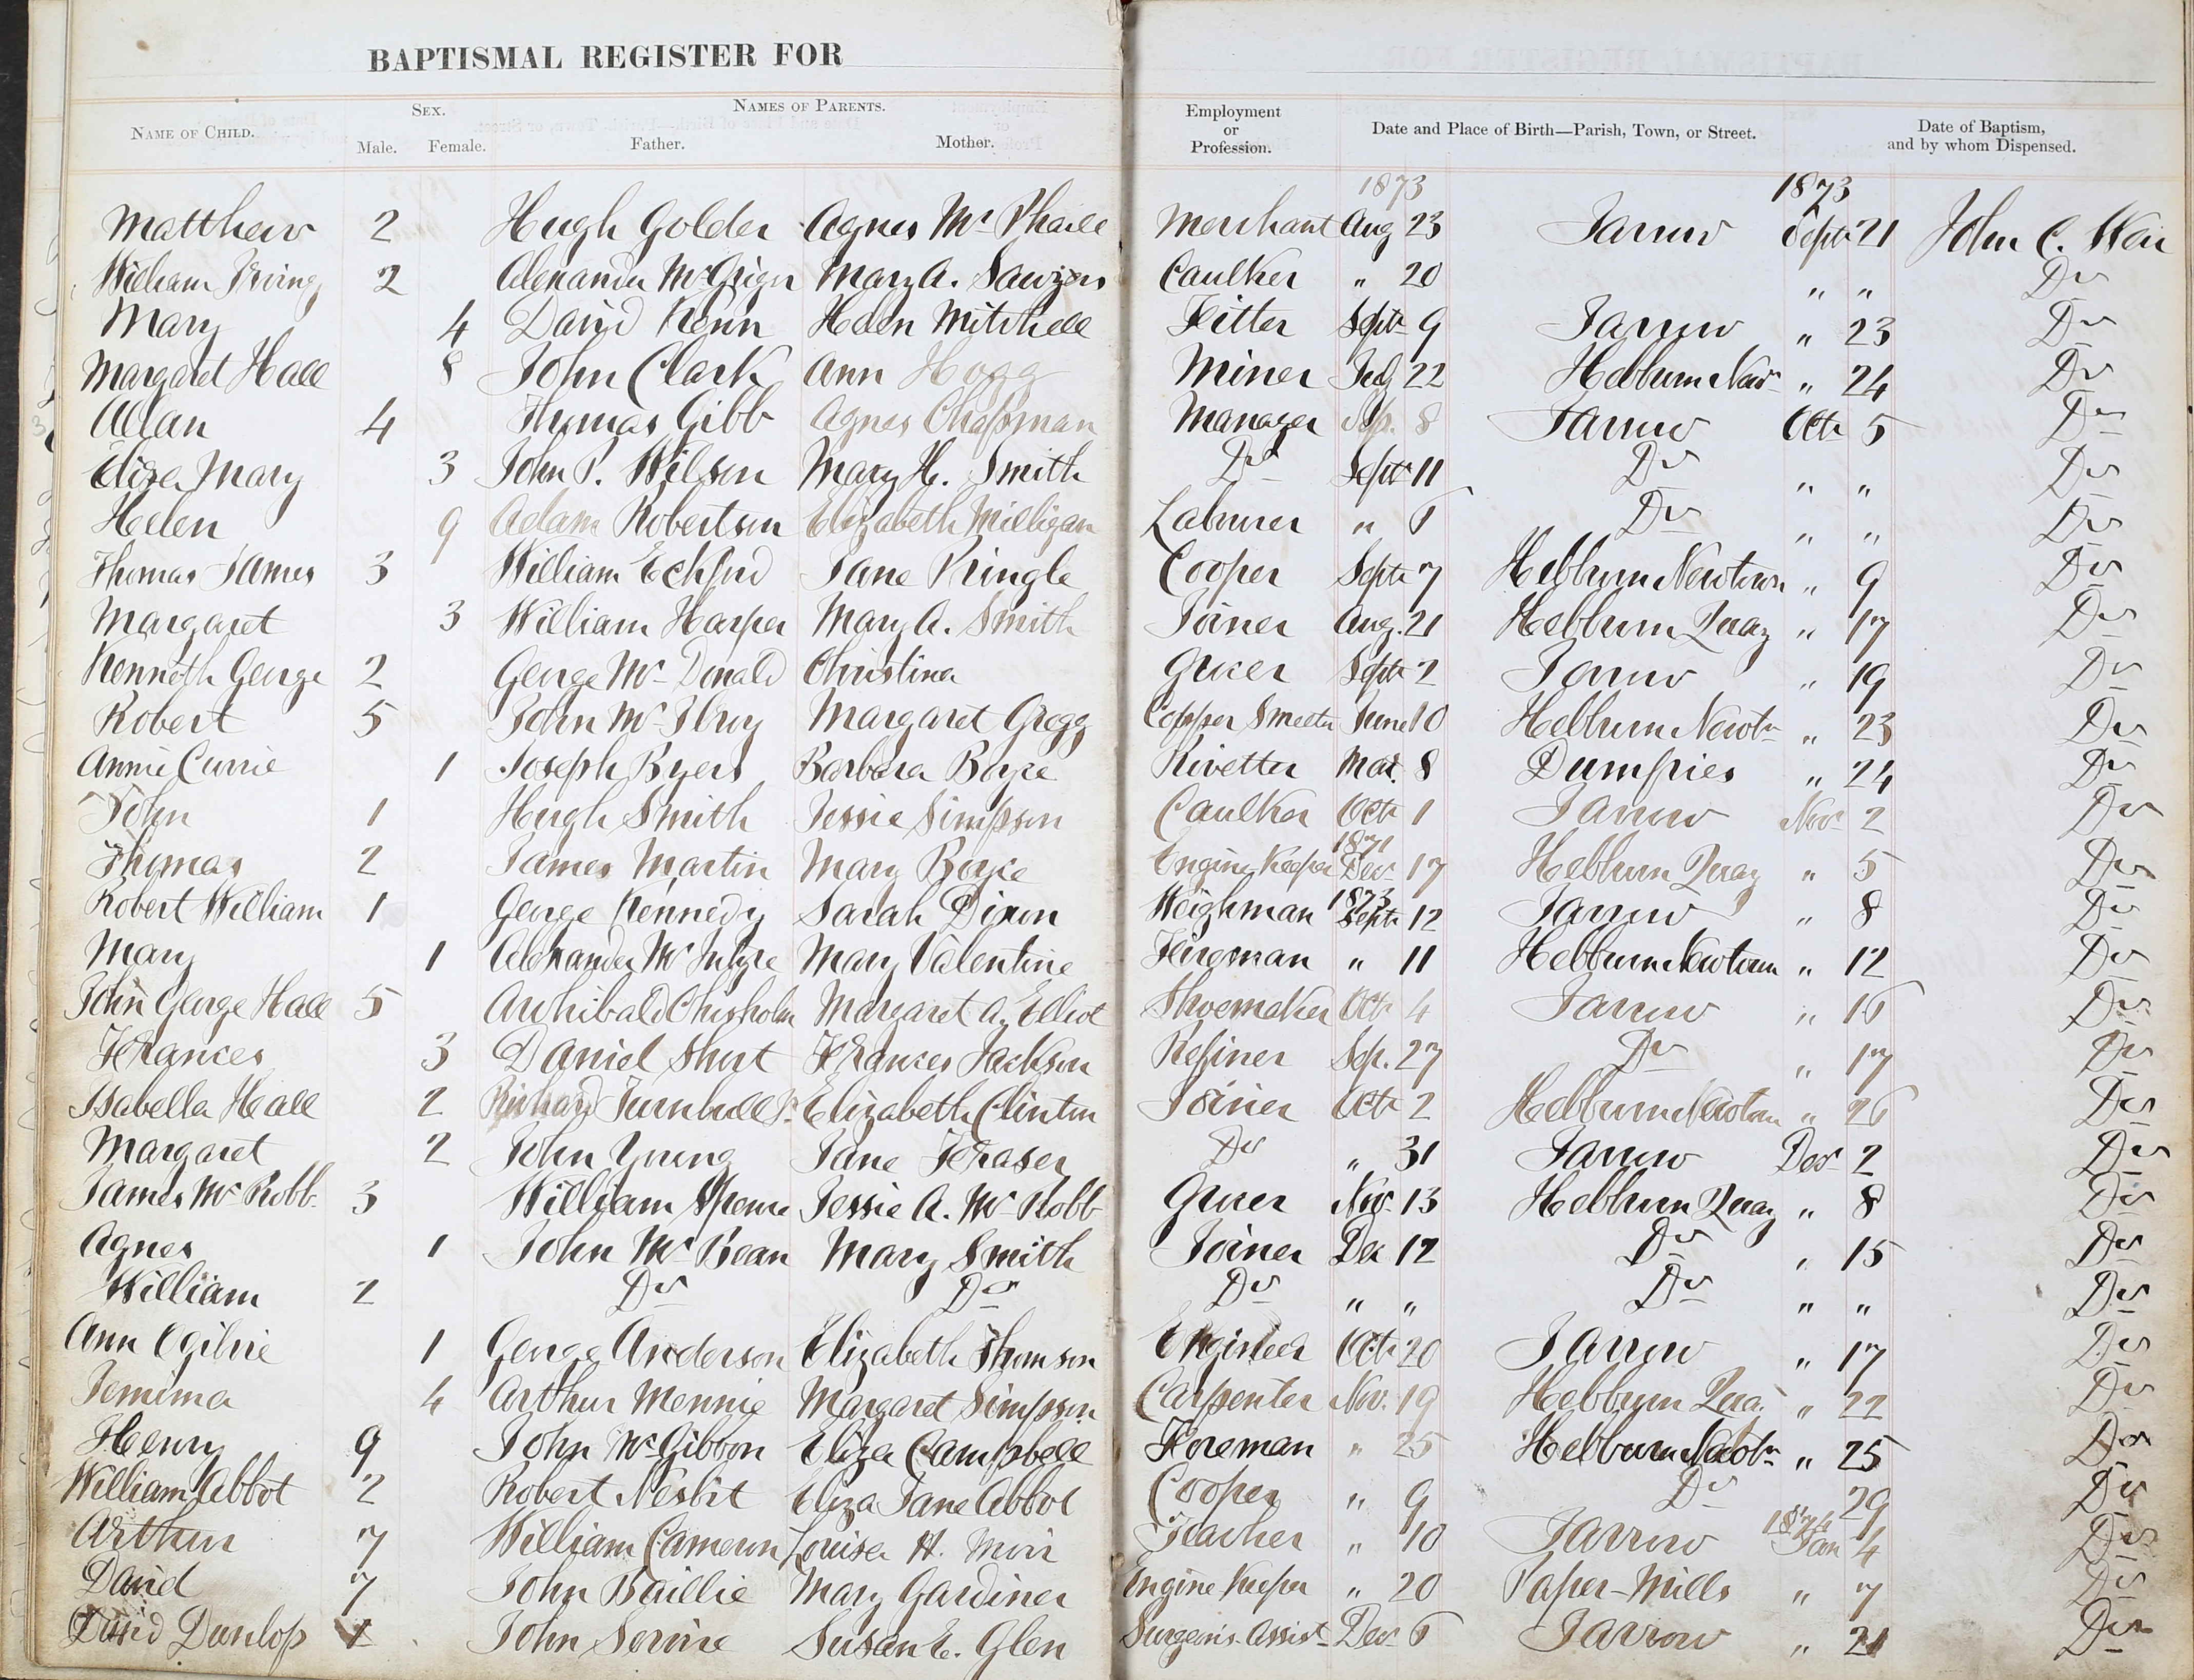 BAPTISMAL REGISTER FOR
NAME OF CHILD. SEX. Male. Female. NAMES OF PARENTS. Father. Mother. Employment or Profession. Date and Place of Birth—Parish, Town, or Street. Date of Baptism, and by whom Dispensed.
1873 1873
Matthew 2 Hugh Golder Agnes Mc Phaill Merchant Aug 23 Jarrow Septr 21 John C. Weir
William Irving 2 Alexander McGrigor Mary A. Sawyers Caulker " 20 " " Do
Mary 4 David Kenn Helen Mitchell Fitter Septr 9 Jarrow " 23 Do
Margaret Hall 8 John Clark Ann Hogg Miner July 22 Hebburn New " 24 Do
Allan 4 Thomas Gibb Agnes Chapman Manager Sep. 8 Jarrow Octr 5 Do
Eliza Mary 3 John P. Wilson Mary H. Smith Do Septr 11 Do " " Do
Helen 9 Adam Robertson Elizabeth Milligan Labourer " 6 Do " " Do
Thomas James 3 William Eckford Jane Pringle Cooper Septr 7 Hebburn Newtown " 9 Do
Margaret 3 William Harper Mary A. Smith Joiner Aug. 21 Hebburn Quay " 17 Do
Kenneth George 2 George Mc Donald Christina Grocer Septr 2 Jarrow " 19 Do
Robert 5 John Mc Ilroy Margaret Gregg Copper Smelter June 10 Hebburn Newtn " 23 Do
Annie Currie 1 Joseph Byers Barbara Boyce Rivetter Mar. 8 Dumfries " 24 Do
John 1 Hugh Smith Jessie Simpson Caulker Octr 1 Jarrow Nov 2 Do
1871
Thomas 2 James Martin Mary Boyce Engine Keeper Decr 17 Hebburn Quay " 5 Do
1873
Robert William 1 George Kennedy Sarah Dixon Weighman Septr 12 Jarrow " 8 Do
Mary 1 Alexander Mc Intyre Mary Valentine Fireman " 11 Hebburn Newtown " 12 Do
John George Hall 5 Archibald Chisholm Margaret A. Elliot Shoemaker Octr 4 Jarrow " 16 Do
Frances 3 Daniel Short Frances Jackson Refiner Sep. 27 Do " 17 Do
Isabella Hall 2 Richard Turnbull Jr. Elizabeth Clinton Joiner Octr 2 Hebburn Newtown " 26 Do
Margaret 2 John Young Jane Fraser Do " 31 Jarrow Decr 2 Do
James Mc Robb 3 William Spence Jessie A. Mc Robb Grocer Nov. 13 Hebburn Quay " 8 Do
Agnes 1 John Mc Bean Mary Smith Joiner Dec 12 Do " 15 Do
William 2 Do Do Do " " Do " " Do
Ann Ogilvie 1 George Anderson Elizabeth Thomson Engineer Octr 20 Jarrow " 17 Do
Jemima 4 Arthur Mennie Margaret Simpson Carpenter Nov. 19 Hebburn Qua. " 22 Do
Henry 9 John McGibbon Eliza Campbell Foreman " 25 Hebburn Newtn " 25 Do
William Abbot 2 Robert Nesbit Eliza Jane Abbot Cooper " 9 Do 29 Do
1874
Arthur 7 William Cameron Louisa H. Moir Teacher " 10 Jarrow Jan 4 Do
David 7 John Baillie Mary Gardiner Engine Keeper " 20 Paper-Mills " 7 Do
David Dunlop 1 John Service Susan E. Glen Surgeon's Assist Decr 6 Jarrow " 21 Do